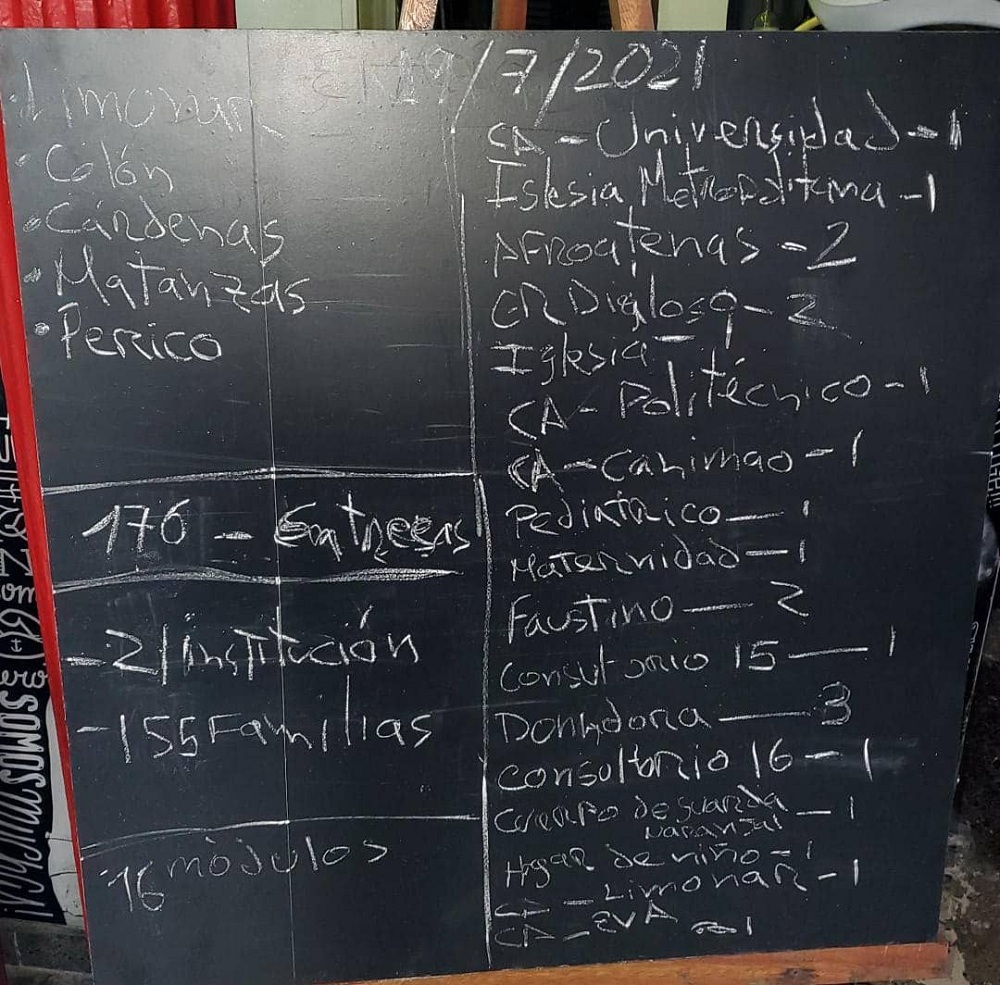 19/7/2021
.Limonar
.Colón
.Cárdenas
.Matanzas
.Perico
176 - Entregas
-21 institución
-155 Familias
16 módulos
CA - Universidad - 1
Islesia Metropolitana - 1
AFROatenas - 2
CR Dialoso - 2
Iglesia
CA - Politécnico - 1
CA - Canimao - 1
Pediatrico - 1
Maternidad - 1
Faustino - 2
Consultorio 15 - 1
Donadora - 3
Consultorio 16 - 1
Cuerpo de guardia - 1
Naranjal
Hogar de niño - 1
Limonar - 1
CA - EVA - 1
SOMOS